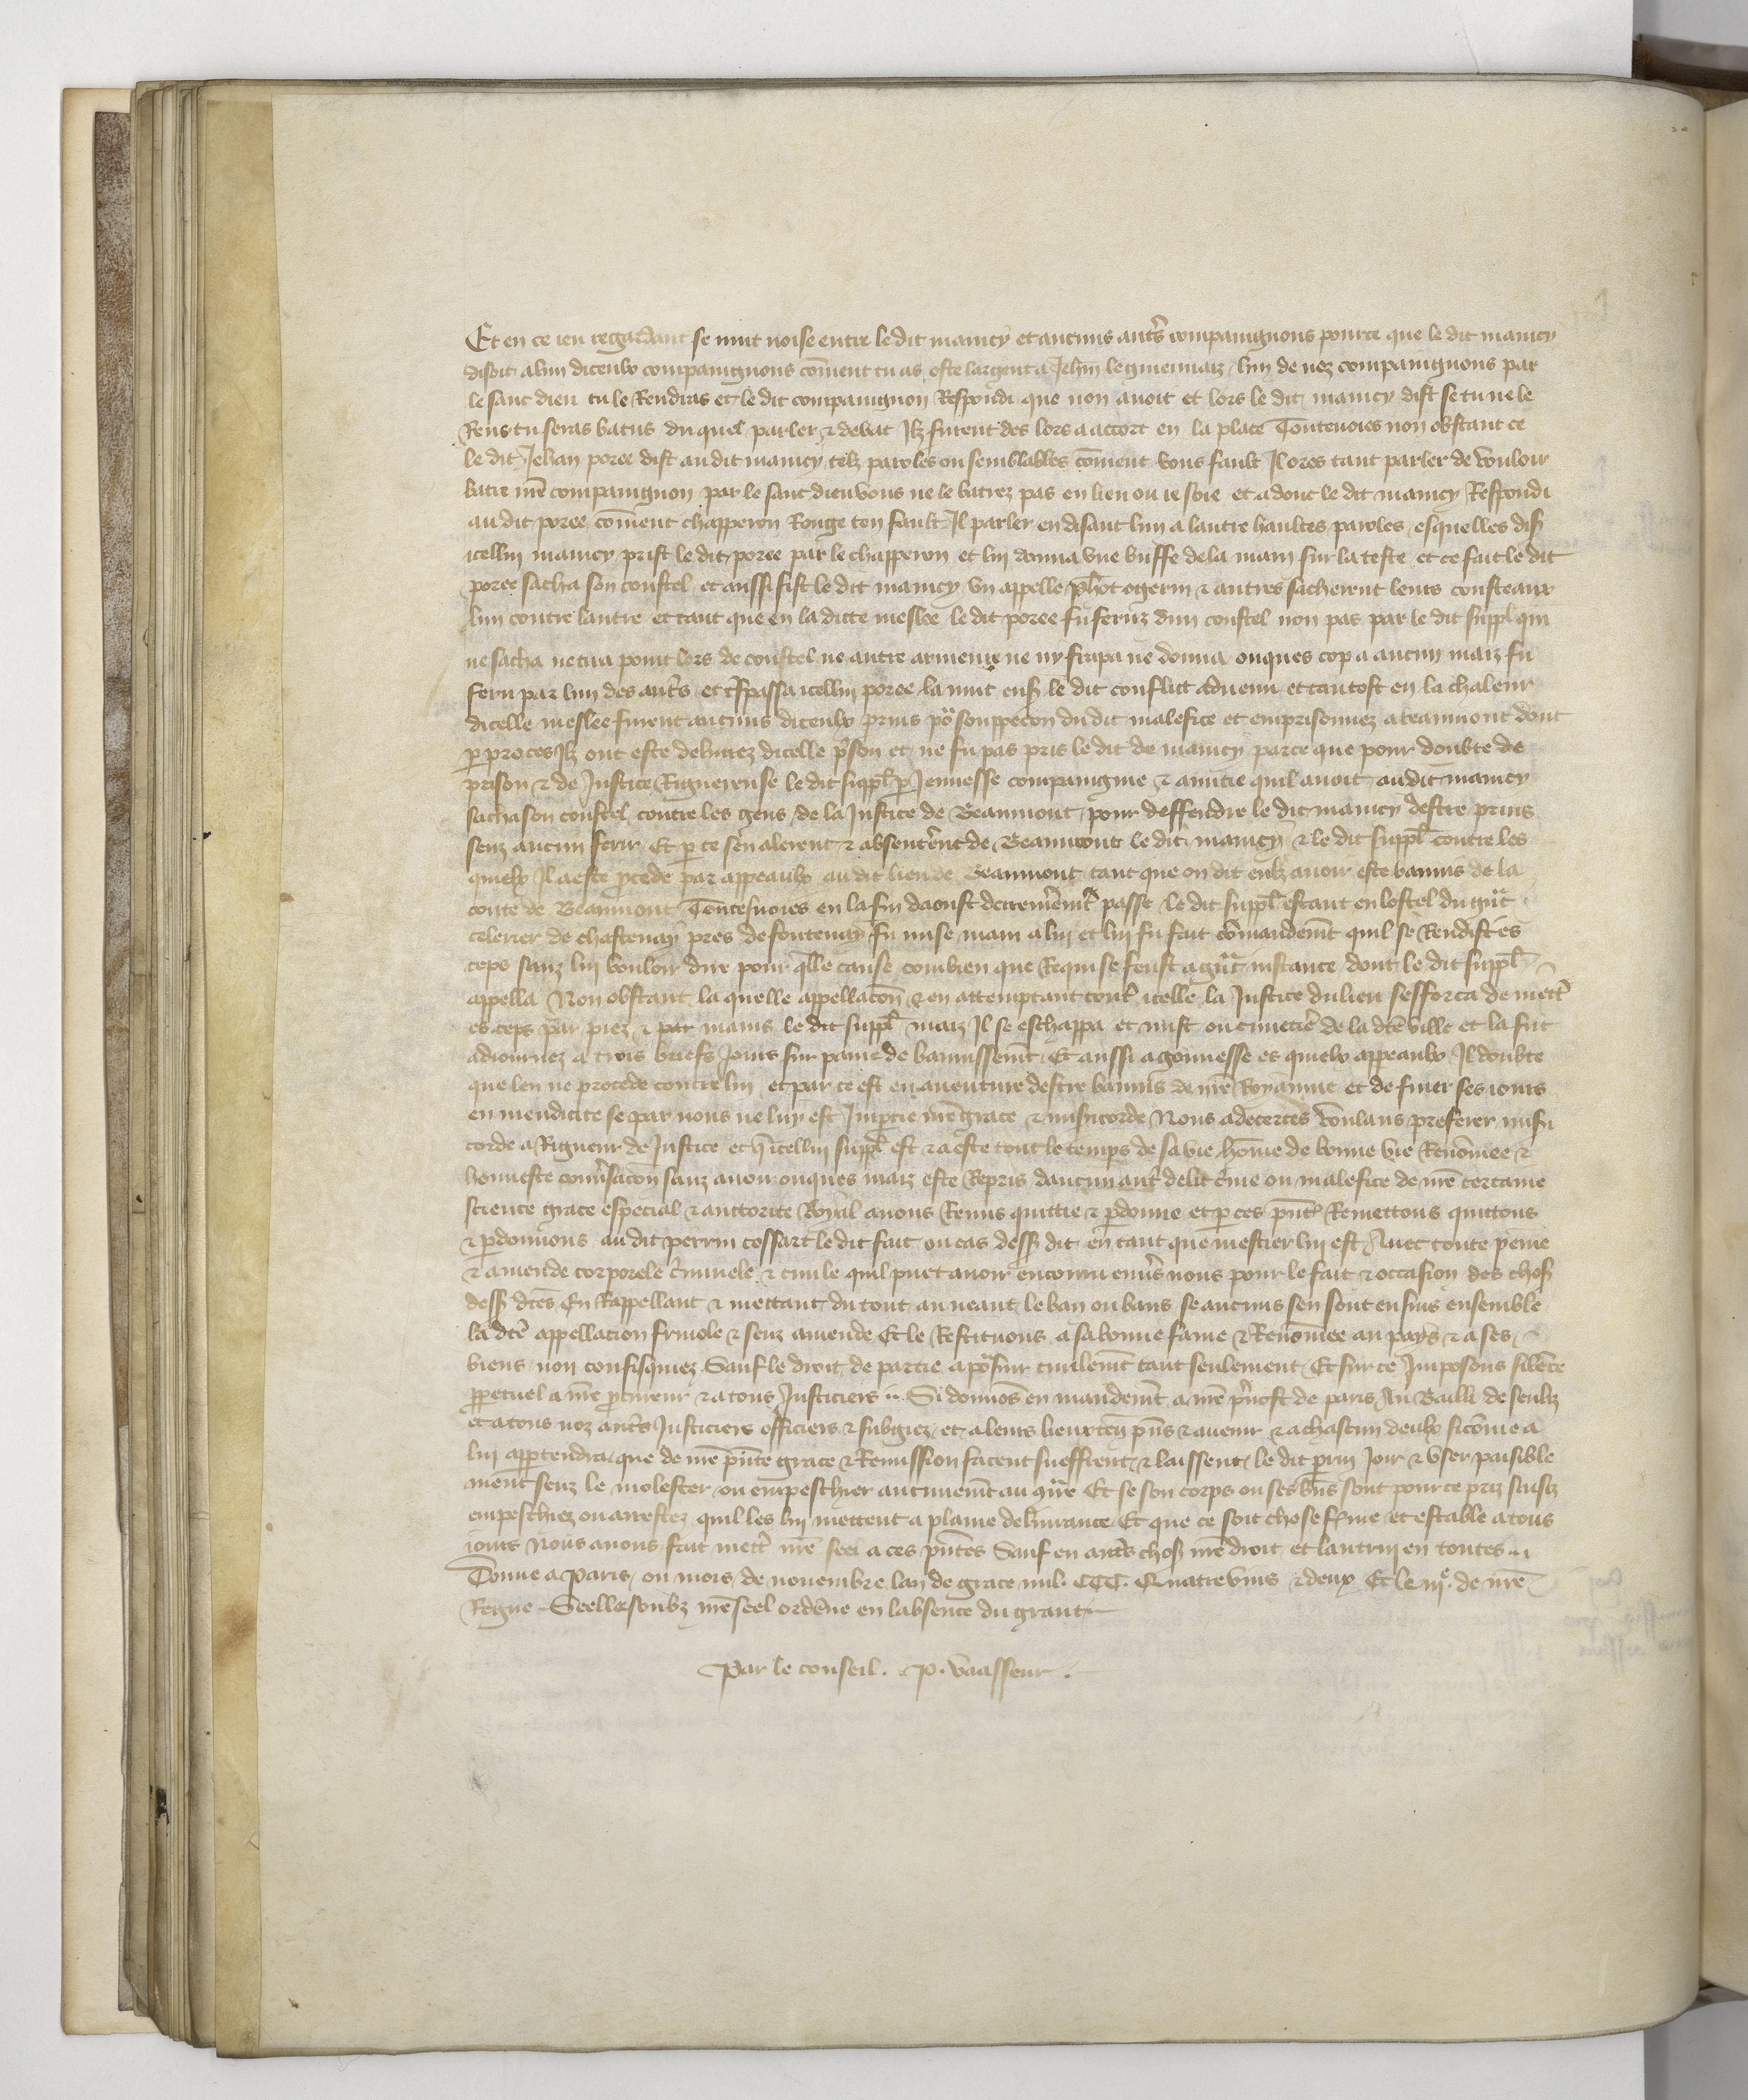 Et en ce ieu regardant se mut noise entre le dit maucy et aucuns autˢ compaingnons pource que le dit maucy
disoit a lun diceulx compaingnons cōment tu as oste largent a Jehñ / lun de noz compaingnons par
le sanc dieu tu le Rendras et le dit compaingnon Respondi que non avoit et lors le dit maucy dist se tu ne le
Rens tu seras batus du quel parler & debat Ilz furent des lors a accort en la place Toutevoies non obstant ce
le dit Jehan poree dist au dit maucy telz paroles ou semblables cōment vous fault Il ores tant parler de vouloir
batre mō compaingnon par le sanc dieu vous ne le batrez pas en lieu ou ie soie et adonc le dit maucy Respondi
au dit poree cōment chapperon Rouge ten fault Il parler en disant lun a lautre haultes paroles esquelles dis
icellui maucy prist le dit poree par le chapperon et lui donna une buffe de la main sur la teste et ce fait le dit
poree sacha son coustel et aussi fist le dit maucy un appelle ogerin & autres sacherent leurs cousteaux
lun contre lautre et tant que en la dicte meslee le dit poree fu feruz dun coustel non pas par le dit suppl qui
ne sacha ne tira point lors de coustel ne autre armeure ne ny frapa ne donna onques cop a aucun maiz fu
feru par lun des autˢ et tˢpassa icellui poree la nuit ens le dit conflict advenu et tantost en la chaleur
dicelle meslee furent aucuns diceulx prins pō souppecon du dit malefice et emprisonnez a beaumont dont
p proces Ilz ont este delivrez dicelle pson et ne fu pas pris le dit de maucy parce que pour doubte de
prison & de Justice Riguereuse le dit suppl p Jeunesse compaingnie & amitie quil avoit au dit maucy
sacha son coustel contre les gens de la Justice de Beaumont pour deffendre le dit maucy destre prins
senz aucun ferir Et p ce sen alerent & absenterent de Beaumont le dit maucy & le dit suppl contre les
quielx Il a este pcede par appeaulx au dit lieu de Beaumont tant que on dit eulx avoir este bannis de la
conte de Beaumont Toutesvoies en la fin daoust derremēmt passe le dit suppl estant en lostel du
celerier de chastenay pres de fontenay fu mise main a lui et lui fu fait cōmandemt quil se Rendist es
ceps sanz lui vouloir dire pour qlle cause combien que Requise feust a instance dont le dit suppl
appella Non obstant la quelle appellacōn & en attemptant contˢ icelle la Justice du lieu sefforca de mettˢ
es ceps par piez & par mains le dit suppl maiz Il se eschappa et mist ou cimetiē de la dcē ville et la fut
adiournez a trois briefs Jours sur paine de bannissemt Et aussi a gonnesse es quielx appeaulx Il doubte
que len ne procede contre lui et par ce est en aventure destre bannis de nrē Royaume et de finer ses iours
en mendicite se par nous ne luy est Impertie nrē grace & misicorde Nous adecertes voulans preferer misi
corde a Rigueur de Justice et q̄ icellui suppl est & a este tout le temps de sa vie hōme de bonne vie Renōmee &
honneste conṽsacōn sanz avoir onques maiz este Repris daucun autˢ delit cime ou malefice de nrē certaine
science grace especial & auctorite Royal avons Remis quittie & pdonne et p ces pñt Remettons quittons
& pdonnons au dit perrin cossart le dit fait ou cas dess dit en tant que mestier lui est Avec toute peine
& amende corporele ciminele & civile quil puet avoir encouru envˢ nous pour le fait & occasion des chos
dess dcēs En Rappellant & mettant du tout au neant le ban ou bans se aucuns sen sont ensuis ensemble
la dcē appellacion frivole & senz amende Et le Restituons a sa bonne fame & Renōmee au pays & a ses
biens non confisquez Sauf le droit de partie a pōsuir civilemt tant seulement Et sur ce Imposons silēce
ppetuel a nrē pcureur & a tous Justiciers .. Si donnōs en mandemt a nrē pvost de paris Au Bailli de senliz
et a tous noz autˢ Justiciers officiers & subgiez et a leurs lieuxteñ pñs & avenir & a chascun deulx sicōme a
lui apptendra que de nrē pñte grace & Remission facent sueffrent & laissent le dit prin Joir & user paisible
ment senz le molester ou empeschier aucunemt au 9tˢre Et se son corps ou ses bñs sont pour ce priz saisiz
empeschiez ou arrestez quil les lui mettent a plaine delivrance Et que ce soit chose fme et estable a tous
iours Nous avons fait mettˢ nrē seel a ces pñtes Sauf en autˢ chos nrē droit et lautrui en toutes ..
Donne a Paris ou mois de novembre lan de grace mil. CCC. Quatrevins & deux Et le iijᵉ. de nrē
Regne Seelle soubz nrē seel ordēne en labsence du grant
Par le conseil. P. Vaasseur.